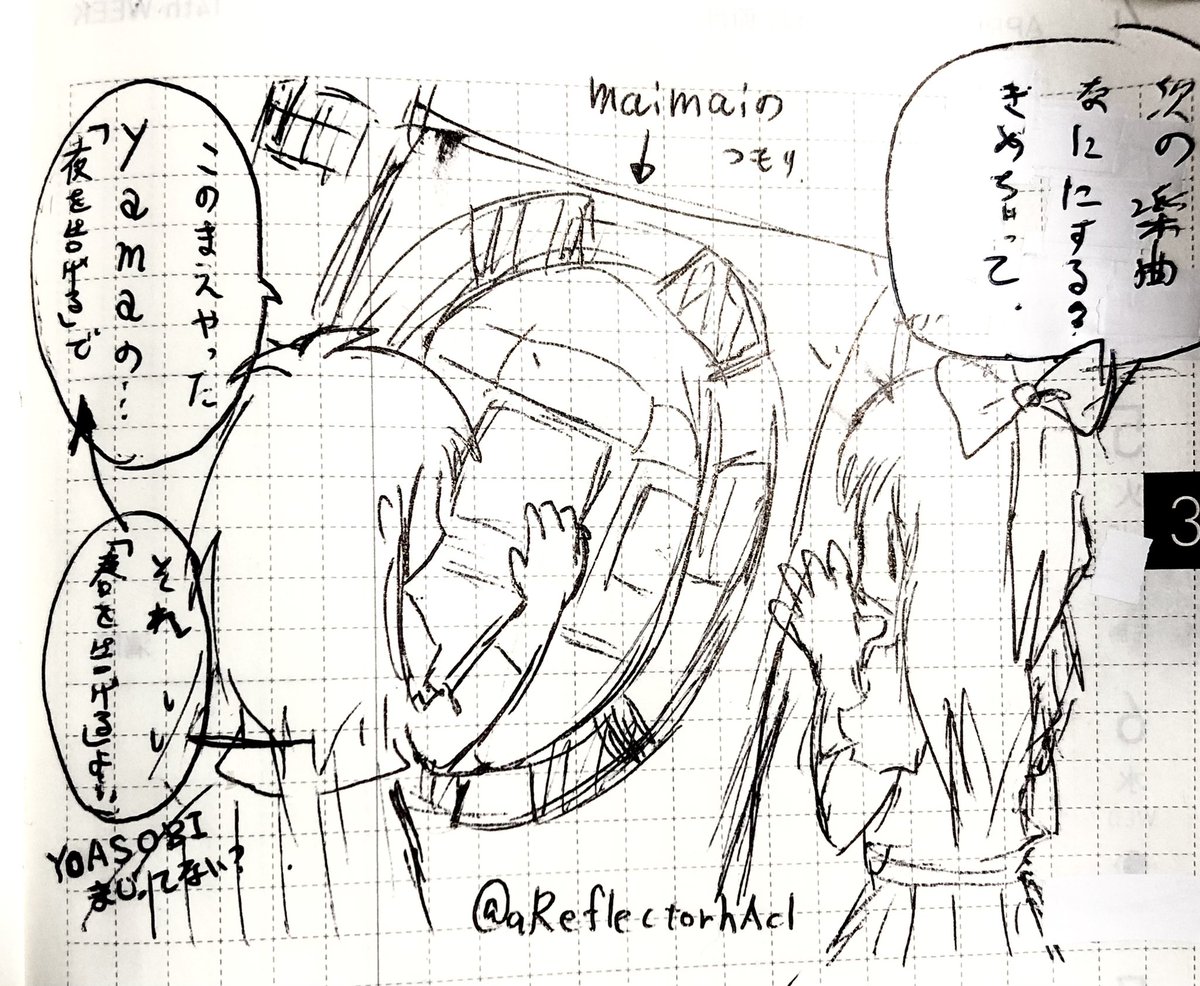 次の楽曲
なににする?
きめちゃって.
maimaiの
つもり
このまえやった
yamaの…
「夜を告げる」で
それ…
「春を告げる」よ…
YOASOBI
まじってない?
@aReflectorhAcl
3
5
火
6
水
14th WEEK